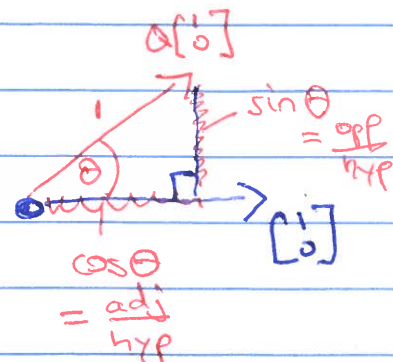 Q[1 0]
1
sin θ
= opp/hyp
θ
[1 0]
cos θ
= adj/hyp